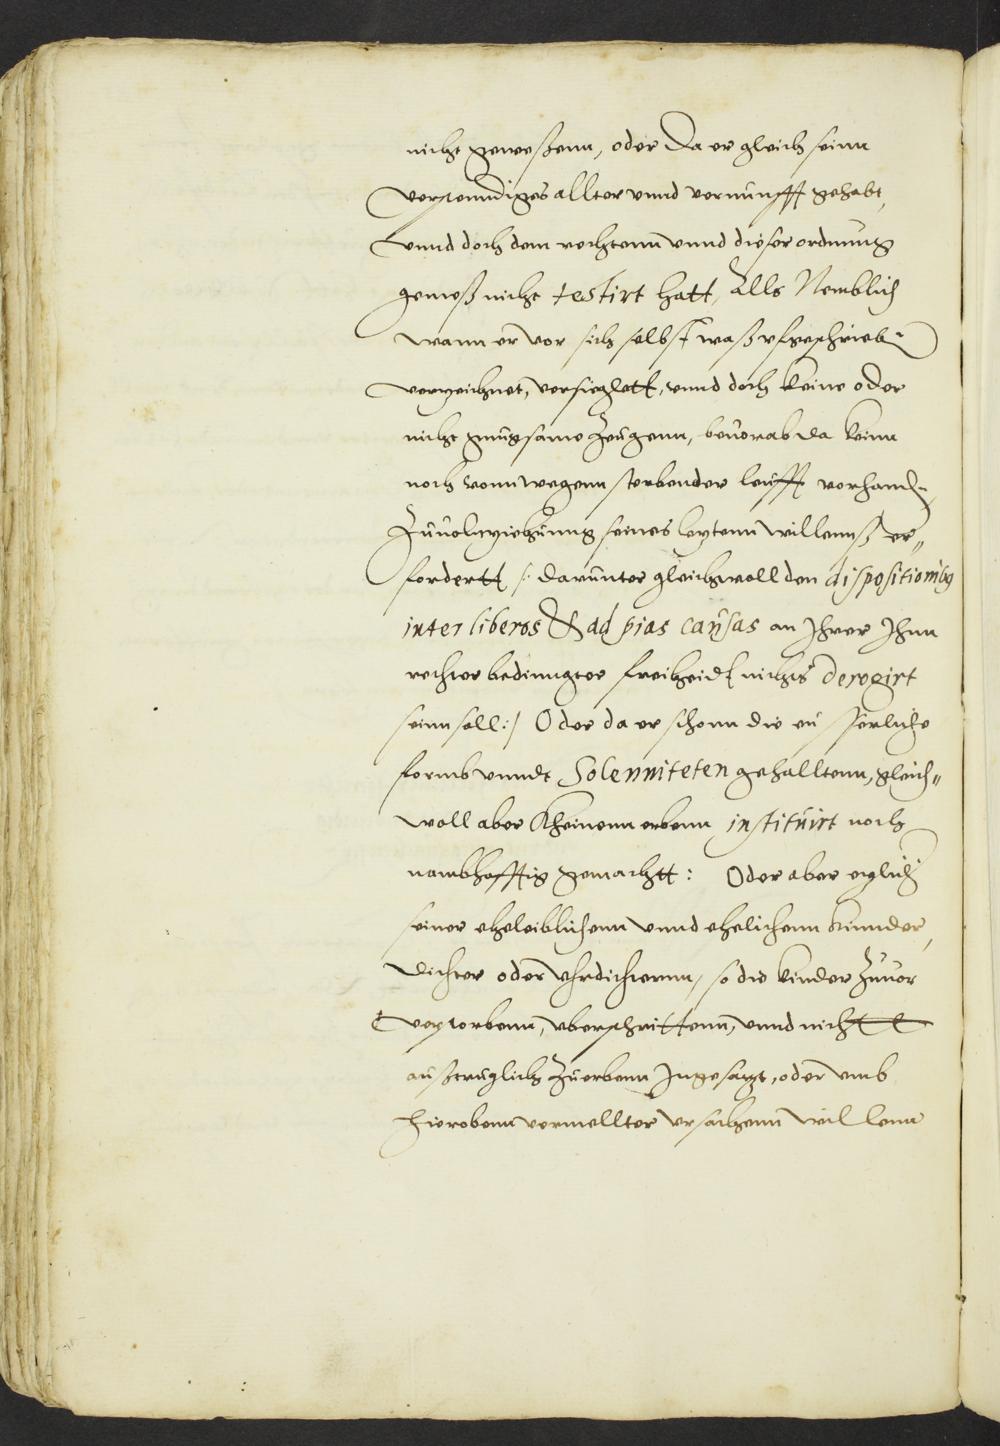 nicht geweßenn, oder da er gleich seinn
verstenndiges allter vnnd vernunfft gehabt,
vnnd doch dem rechtenn vnnd dieser ordnung
gemeß nicht testirt hatt, Alls Nemblich
wann er vor sich selbst waß vfgeschrieben
verzeichnet, versieglett, vnnd doch keine oder
nicht gnugsame Zeugenn, beuorab da keine
noch vonn wegenn sterbender leufft vorhanden,
Zuuolnziehung seines leztenn willennß er„
fordertt /: darunter gleichwoll den dispositionibus
inter liberos & ad pias causas an Ihrer Ihnn
rechter bedingter freiheidt nichts derogirt
sein soll :/ Oder da er schonn die euserliche
formb vnndt Solenniteten gehalltenn, gleich„
woll aber Kheinenn erbenn instituirt noch
nambhafftig gemachtt: Oder aber
seiner eheleiblichenn vnnd ehelichenn kinnder,
dichter oder Vhrdichternn, so die kinder Zuuor
verstorbenn, vberschrittenn, vnnd nicht
außtruglich Zu erbenn Ingesazt, oder vmb
hierobenn vermellter vrsachenn willenn